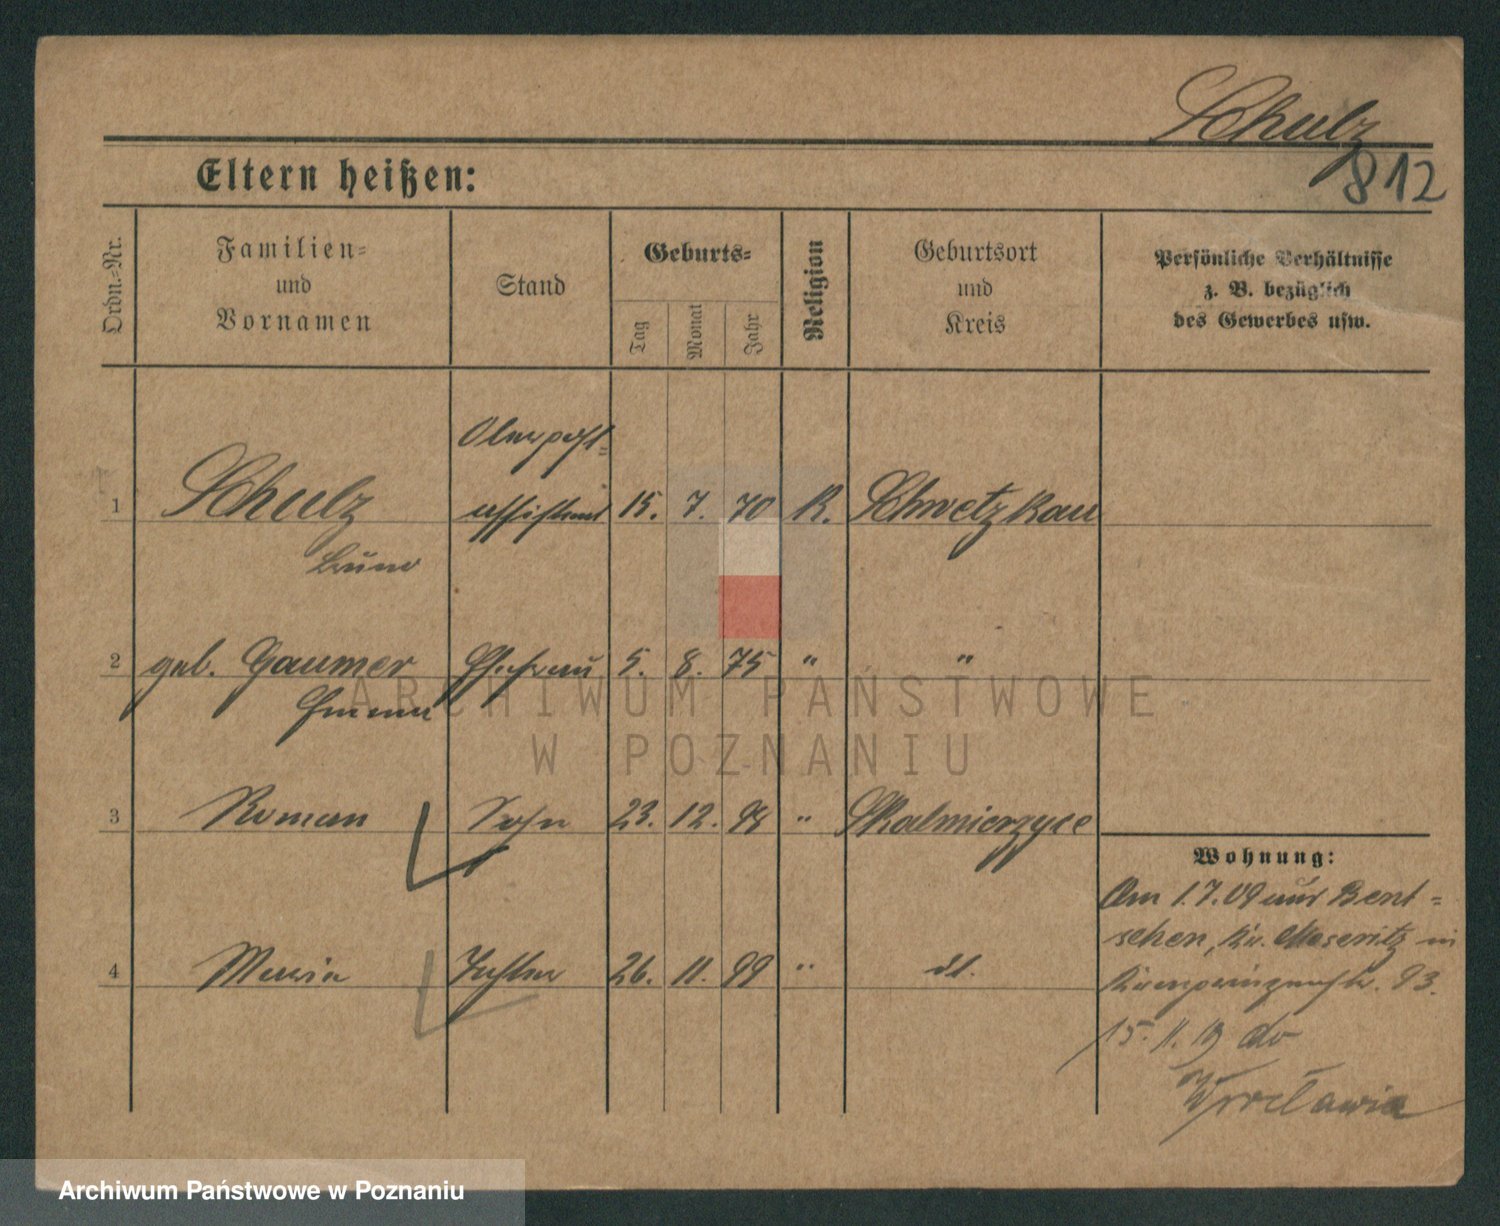 Schulz
812
Eltern heißen:
Ordn.-Nr.
Familien-
und
Vornamen
Stand
Geburts-
Tag
Monat
Jahr
Religion
Geburtsort
und
Kreis
Persönliche Verhältnisse
z. B. bezüglich
des Gewerbes usw.
Oberpost-
1 Schulz assistent 15. 7. 70 K. Schwetzkau
Bruno
2 geb. Gaumer Ehefrau 5. 8. 75 " "
Emma
3 Roman Sohn 23. 12. 98 " Skalmierzyce
4 Maria Tochter 26. 11. 99 " dt.
Wohnung:
Am 1.7.09 aus Bent-
schen, Kr. Meseritz in
Kronprinzenstr. 93.
15. 11. 19 do
Wrocławia
ARCHIWUM PAŃSTWOWE
W POZNANIU
Archiwum Państwowe w Poznaniu